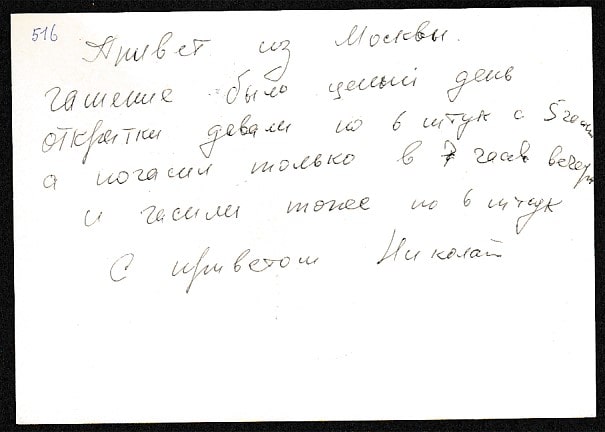 516
Привет из Москвы.
гашение было целый день
открытки давали по 6 штук с 5 часов
а погасил только в 7 часов вечера
и гасили тоже по 6 штук
С приветом Николай